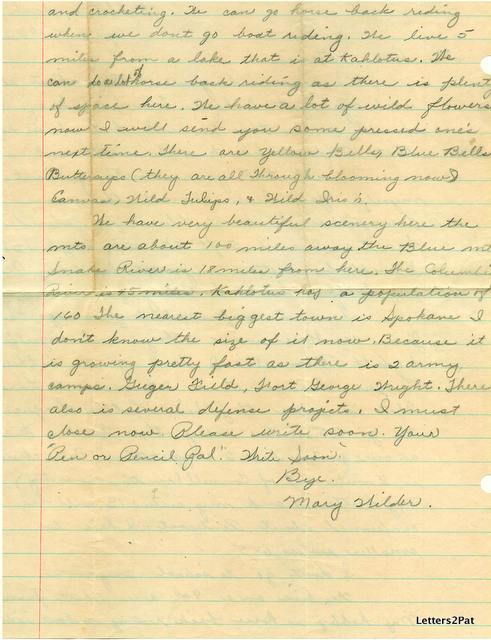 and crocheting. We can go horse back riding
when we dont go boat riding. We live 5
miles from a lake that is at Kahlotus. We
can do a lot of horse back riding as there is plenty
of space here. We have a lot of wild flowers
now I will send you some pressed one's
next time. There are Yellow Bells, Blue Bells
Buttercups (they are all through blooming now)
Canvas, Wild Tulips, & Wild Iris's.
We have very beautiful scenery here the
mts are about 100 miles away the Blue mt
Snake River is 18 miles from here. The Columbi
River is 45 miles. Kahlotus has a population of
160 The nearest biggest town is Spokane I
don't know the size of it now. Because it
is growing pretty fast as there is 2 army
camps. Geiger Field, Fort George Wright. There
also is several defense projets. I must
close now. Please write soon. Your
"Pen or Pencil Pal". Write Soon.
Bye.
Mary Wilder.
Letters2Pat